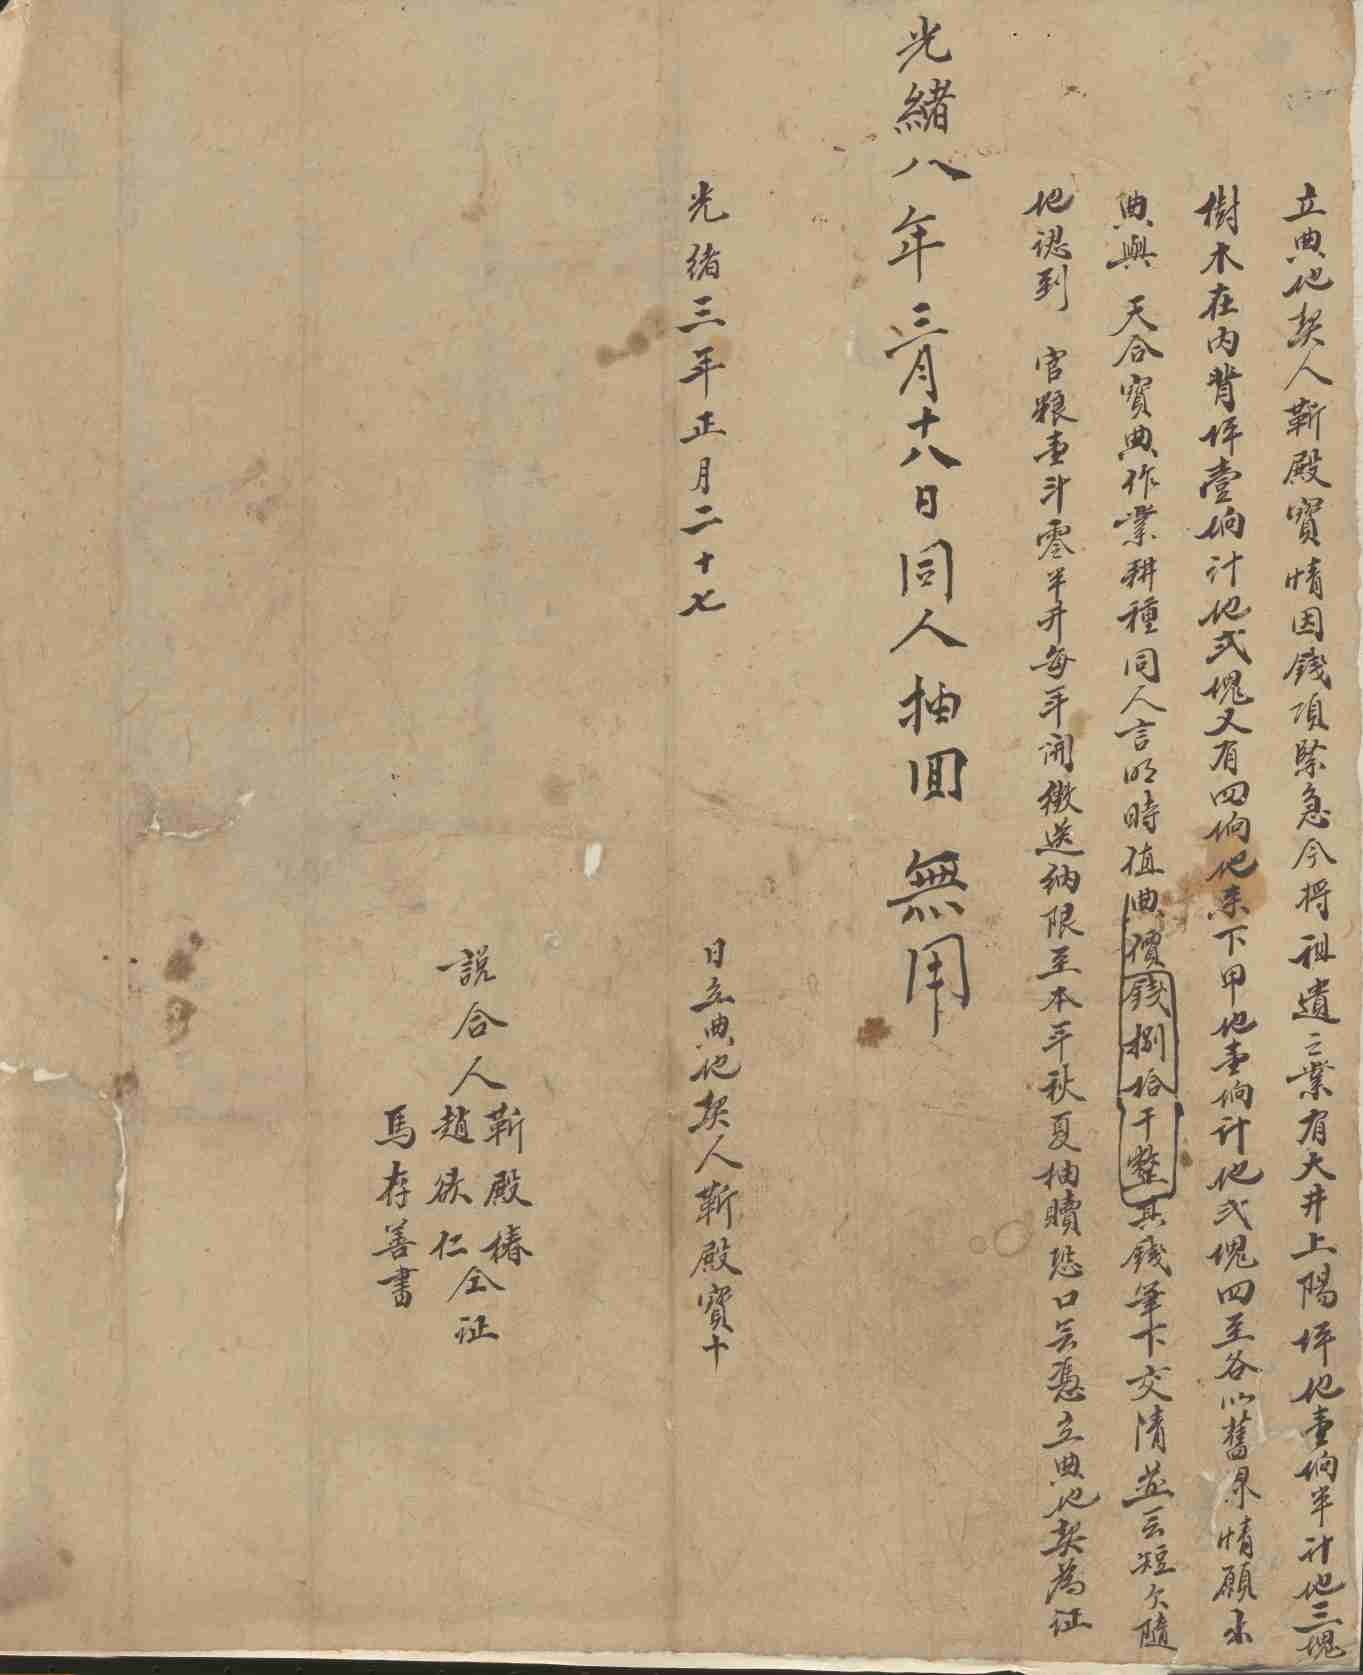 立典地契人靳殿寶情因錢項緊急今將祖遺之業有大井上陽坪地壹垧半計地三塊
樹木在內背坪壹垧計地弍塊又有四垧地末下甲地壹垧計地弍塊四至各以舊界情願出
典與 天合寶典作業耕種同人言明時值典價錢捌拾千整其錢筆下交清並無短欠隨
地認到 官粮壹斗零半升每年開徵送納限至本年秋夏抽贖恐口無憑立典地契為証
光緒八年三月十八日同人抽回無用
光緒三年正月二十七 日立典地契人靳殿寶十
說合人 靳殿椿
趙欲仁 仝証
馬存善書